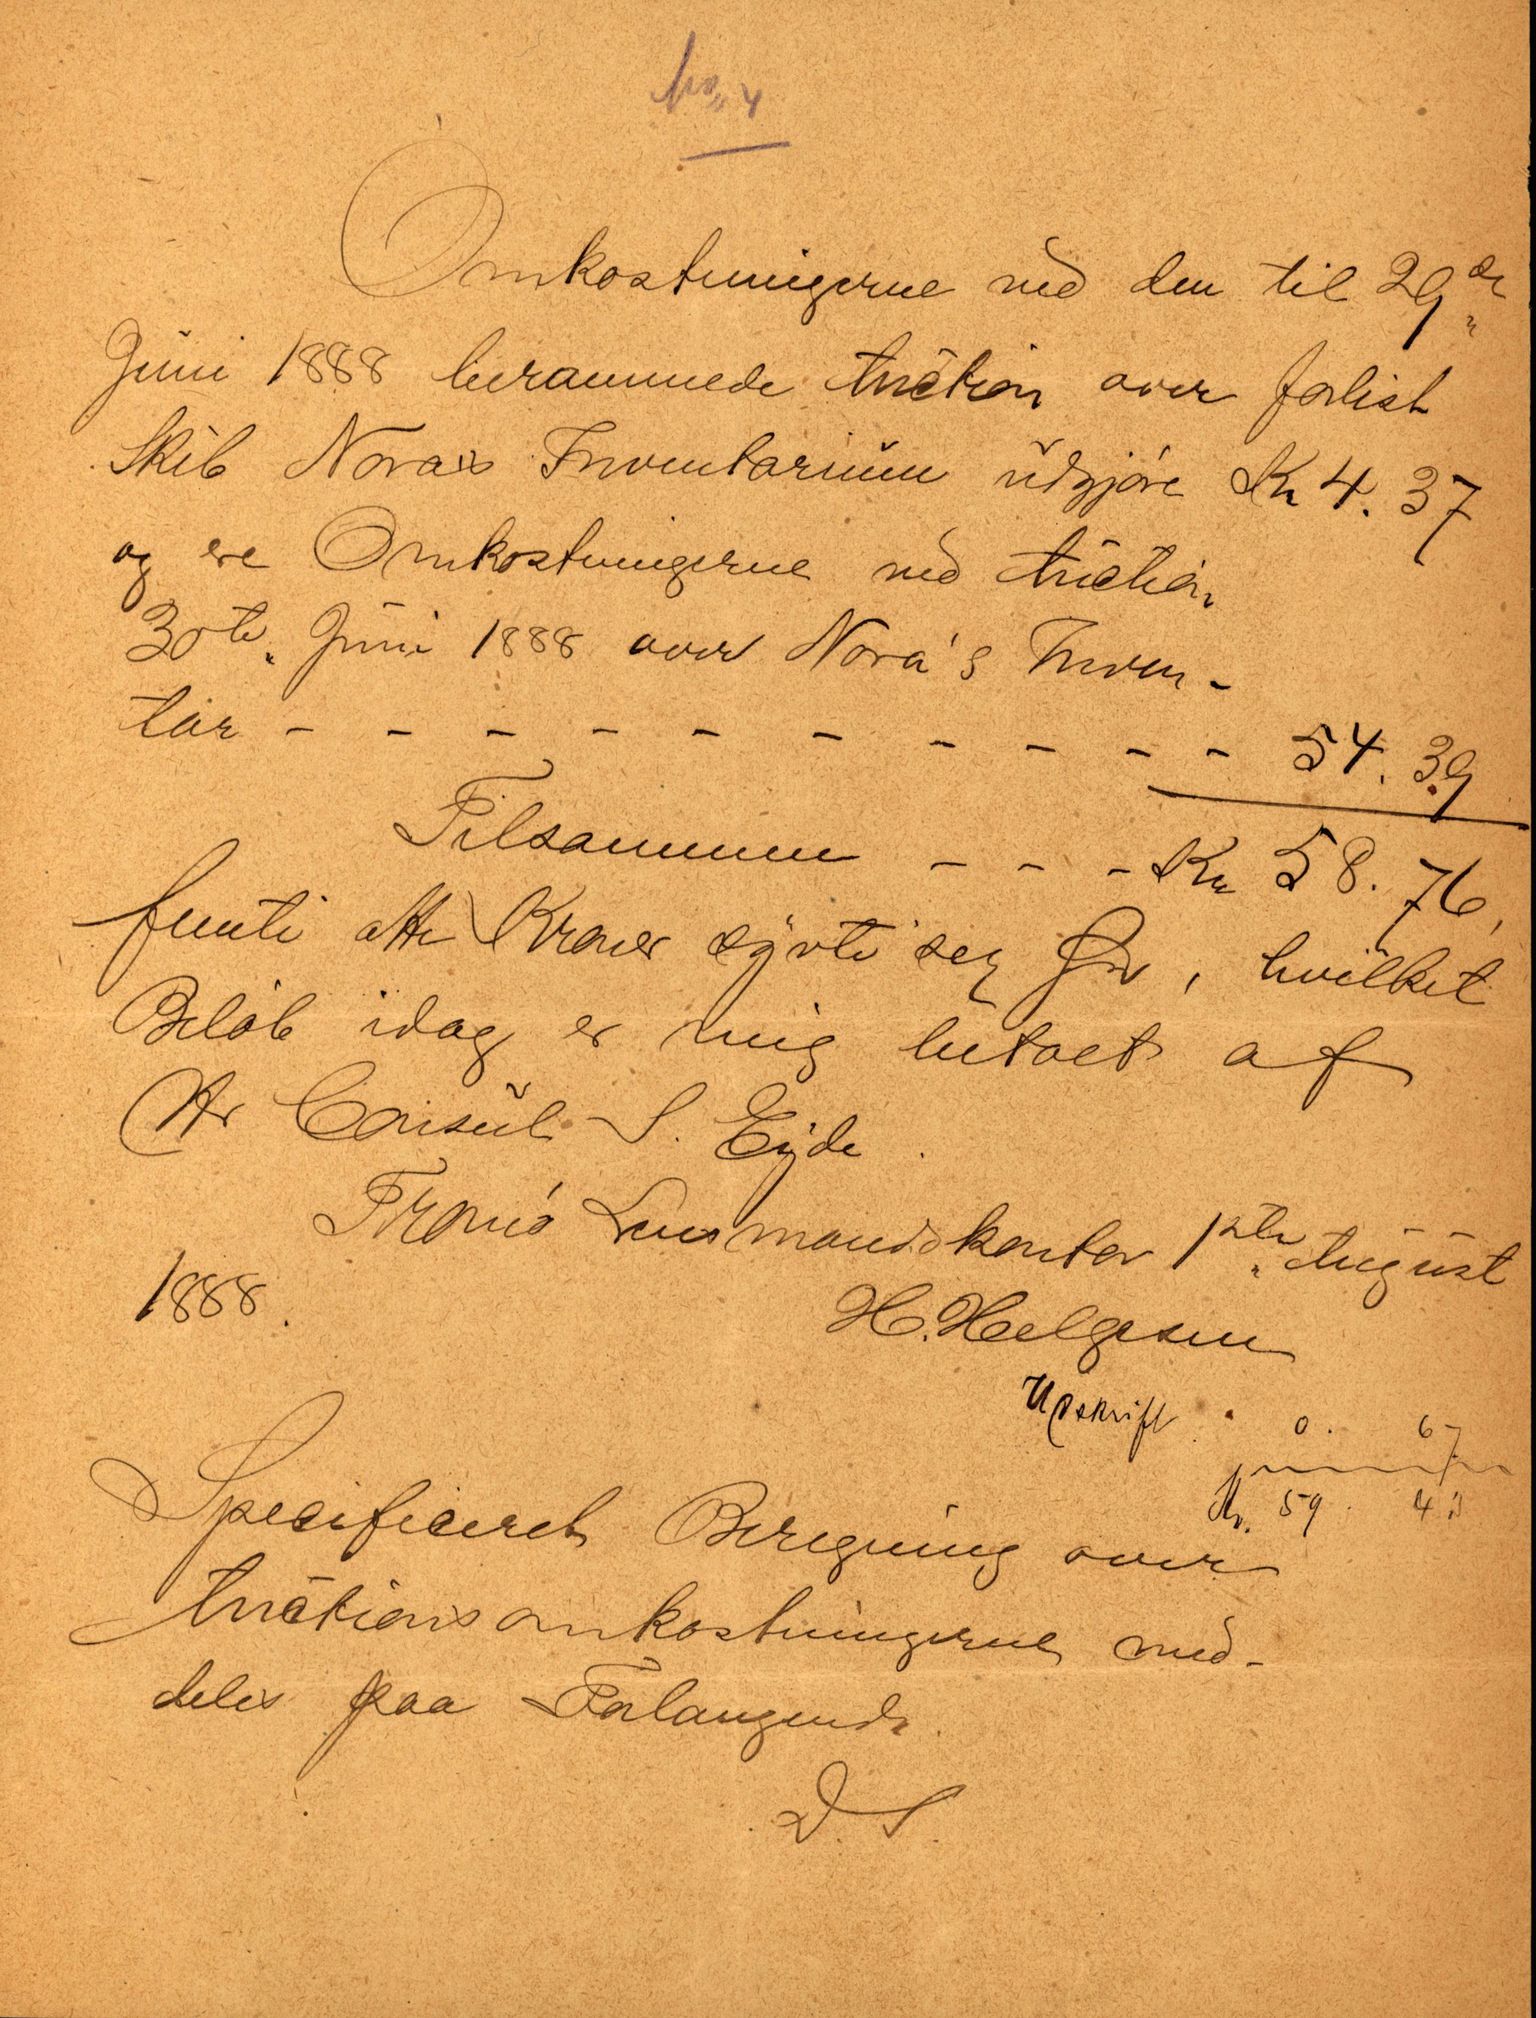 No. 4
Omkostningerne ved den til 29de
Juni 1888 berammede Auction over forlist
Skib Noras Inventarium udgjøre Kr 4. 37
og ere Omkostningerne ved Auction
30te Juni 1888 over Nora's Inven-
tar - - - - - - - - - - 54. 39
Tilsammen - - - Kr 58. 76,
femti otte Kroner sytti sex Øre, hvilket
Beløb idag er mig betalt af
Hr Consul S. Eyde.
Tromø Lensmandskontor 1ste August
1888.
H. Helgesen
Udskrift . 0. 67
Kr. 59. 43
Specificeret Beregning over
Auctionsomkostningerne med-
deles paa Forlangende.
D. S.